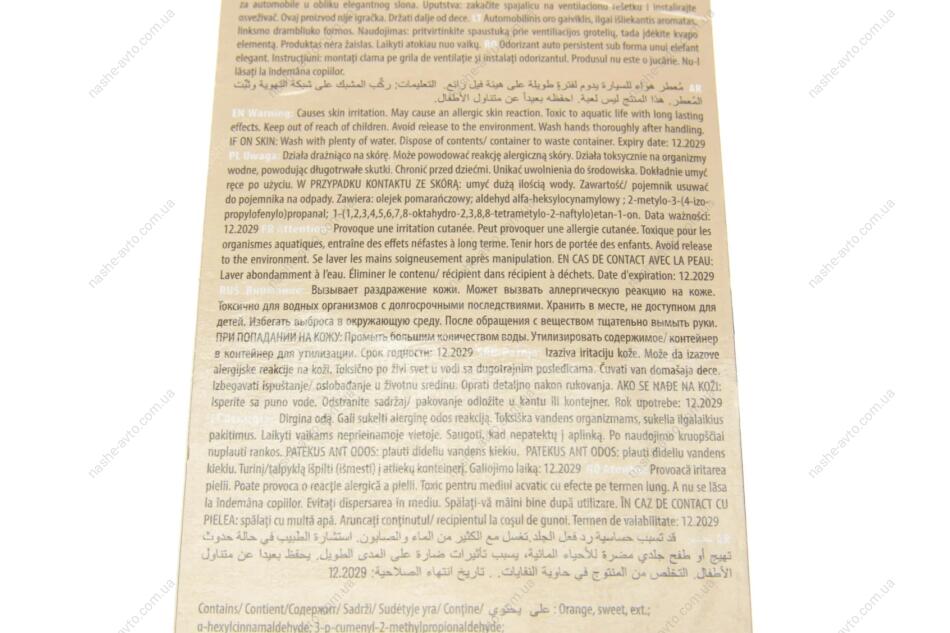 za automobile u obliku elegantnog slona. Uputstva: zakačite spajalicu na ventilacionu rešetku i instalirajte
osveživač. Ovaj proizvod nije igračka. Držati dalje od dece. LT Automobilinis oro gaiviklis, ilgai išliekantis aromatas,
linksmo drambliuko formos. Naudojimas: pritvirtinkite spaustuką prie ventiliacijos grotelių, tada įdėkite kvapo
elementą. Produktas nėra žaislas. Laikyti atokiau nuo vaikų. RO Odorizant auto persistent sub forma unui elefant
elegant. Instrucțiuni: montați clama pe grila de ventilație și instalați odorizantul. Produsul nu este o jucărie. Nu-l
lăsați la îndemâna copiilor.
AR مُعطر هواء للسيارة يدوم لفترة طويلة على هيئة فيل رائع. التعليمات: ركّب المشبك على شبكة التهوية وثبّت
المُعطر. هذا المنتج ليس لعبة. احفظه بعيداً عن متناول الأطفال.
EN Warning: Causes skin irritation. May cause an allergic skin reaction. Toxic to aquatic life with long lasting
effects. Keep out of reach of children. Avoid release to the environment. Wash hands thoroughly after handling.
IF ON SKIN: Wash with plenty of water. Dispose of contents/ container to waste container. Expiry date: 12.2029
PL Uwaga: Działa drażniąco na skórę. Może powodować reakcję alergiczną skóry. Działa toksycznie na organizmy
wodne, powodując długotrwałe skutki. Chronić przed dziećmi. Unikać uwolnienia do środowiska. Dokładnie umyć
ręce po użyciu. W PRZYPADKU KONTAKTU ZE SKÓRĄ: umyć dużą ilością wody. Zawartość/ pojemnik usuwać
do pojemnika na odpady. Zawiera: olejek pomarańczowy; aldehyd alfa-heksylocynamylowy ; 2-metylo-3-(4-izo-
propylofenylo)propanal; 1-(1,2,3,4,5,6,7,8-oktahydro-2,3,8,8-tetrametylo-2-naftylo)etan-1-on. Data ważności:
12.2029 FR Attention: Provoque une irritation cutanée. Peut provoquer une allergie cutanée. Toxique pour les
organismes aquatiques, entraîne des effets néfastes à long terme. Tenir hors de portée des enfants. Avoid release
to the environment. Se laver les mains soigneusement après manipulation. EN CAS DE CONTACT AVEC LA PEAU:
Laver abondamment à l'eau. Éliminer le contenu/ récipient dans récipient à déchets. Date d'expiration: 12.2029
RUS Внимание: Вызывает раздражение кожи. Может вызвать аллергическую реакцию на коже.
Токсично для водных организмов с долгосрочными последствиями. Хранить в месте, не доступном для
детей. Избегать выброса в окружающую среду. После обращения с веществом тщательно вымыть руки.
ПРИ ПОПАДАНИИ НА КОЖУ: Промыть большим количеством воды. Утилизировать содержимое/ контейнер
в контейнер для утилизации. Срок годности: 12.2029 SRB Pažnja: Izaziva iritaciju kože. Može da izazove
alergijske reakcije na koži. Toksično po živi svet u vodi sa dugotrajnim posledicama. Čuvati van domašaja dece.
Izbegavati ispuštanje/ oslobađanje u životnu sredinu. Oprati detaljno nakon rukovanja. AKO SE NAĐE NA KOŽI:
Isperite sa puno vode. Odstranite sadržaj/ pakovanje odložite u kantu ili kontejner. Rok upotrebe: 12.2029
Dirgina odą. Gali sukelti alerginę odos reakciją. Toksiška vandens organizmams, sukelia ilgalaikius
pakitimus. Laikyti vaikams neprieinamoje vietoje. Saugoti, kad nepatektų į aplinką. Po naudojimo kruopščiai
nuplauti rankos. PATEKUS ANT ODOS: plauti dideliu vandens kiekiu. PATEKUS ANT ODOS: plauti dideliu vandens
kiekiu. Turinį/talpyklą išpilti (išmesti) į atliekų konteinerį. Galiojimo laiką: 12.2029 RO Atenție: Provoacă iritarea
pielii. Poate provoca o reacție alergică a pielii. Toxic pentru mediul acvatic cu efecte pe termen lung. A nu se lăsa
la îndemâna copiilor. Evitați dispersarea în mediu. Spălați-vă mâini bine după utilizare. ÎN CAZ DE CONTACT CU
PIELEA: spălați cu multă apă. Aruncați conținutul/ recipientul la coșul de gunoi. Termen de valabilitate: 12.2029
AR قد تسبب حساسية رد فعل الجلد,تغسل مع الكثير من الماء والصابون. استشارة الطبيب في حالة حدوث
تهيج أو طفح جلدي مضرة للأحياء المائية، يسبب تأثيرات ضارة على المدى الطويل. يحفظ بعيدا عن متناول
الأطفال. التخلص من المنتوج في حاوية النفايات. . تاريخ انتهاء الصلاحية: 12.2029
Contains/ Contient/Содержит/ Sadrži/ Sudėtyje yra/ Conține/ على يحتوي : Orange, sweet, ext.;
α-hexylcinnamaldehyde; 3-p-cumenyl-2-methylpropionaldehyde;
nashe-avto.com.ua